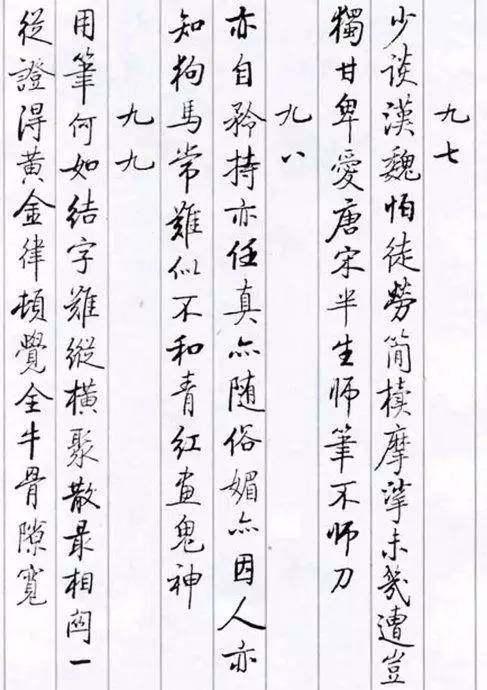 九七
少谈漢魏怕徒勞簡椟摩挲未幾遭豈
獨甘卑愛唐宋半生师筆不师刀
九八
亦自矜持亦任真亦随俗媚亦因人亦
知狗馬常難似不和青红畫鬼神
九九
用筆何如結字難縱橫聚散最相関一
從證得黃金律頓覺全牛骨隙寬